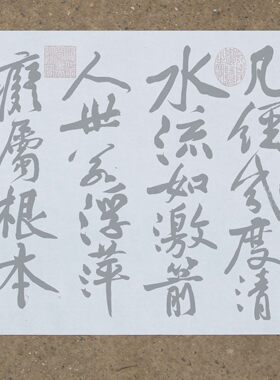 凡經幾度清
水流如激箭
人世若浮萍
癡屬根本